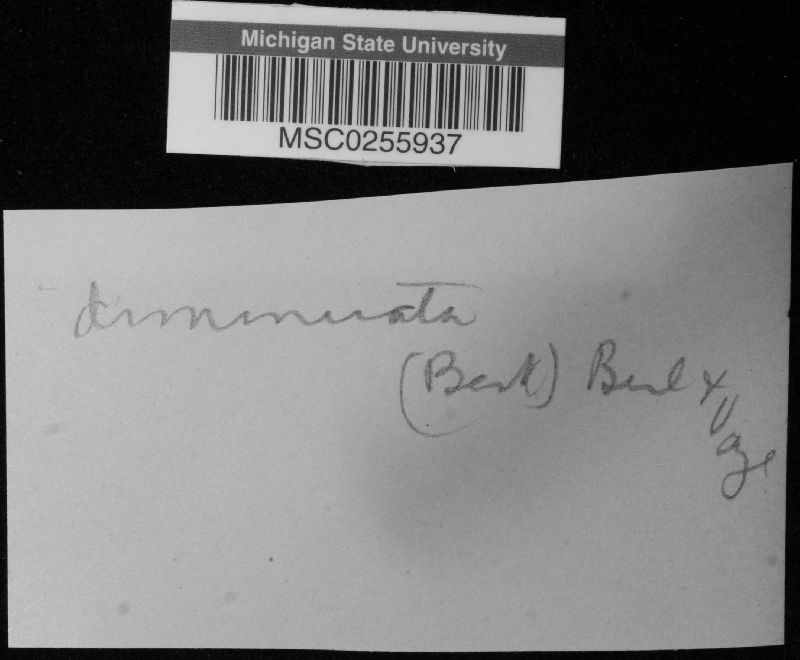 Michigan State University
MSC0255937
diminuata
(Berk) Berl &
Vogl